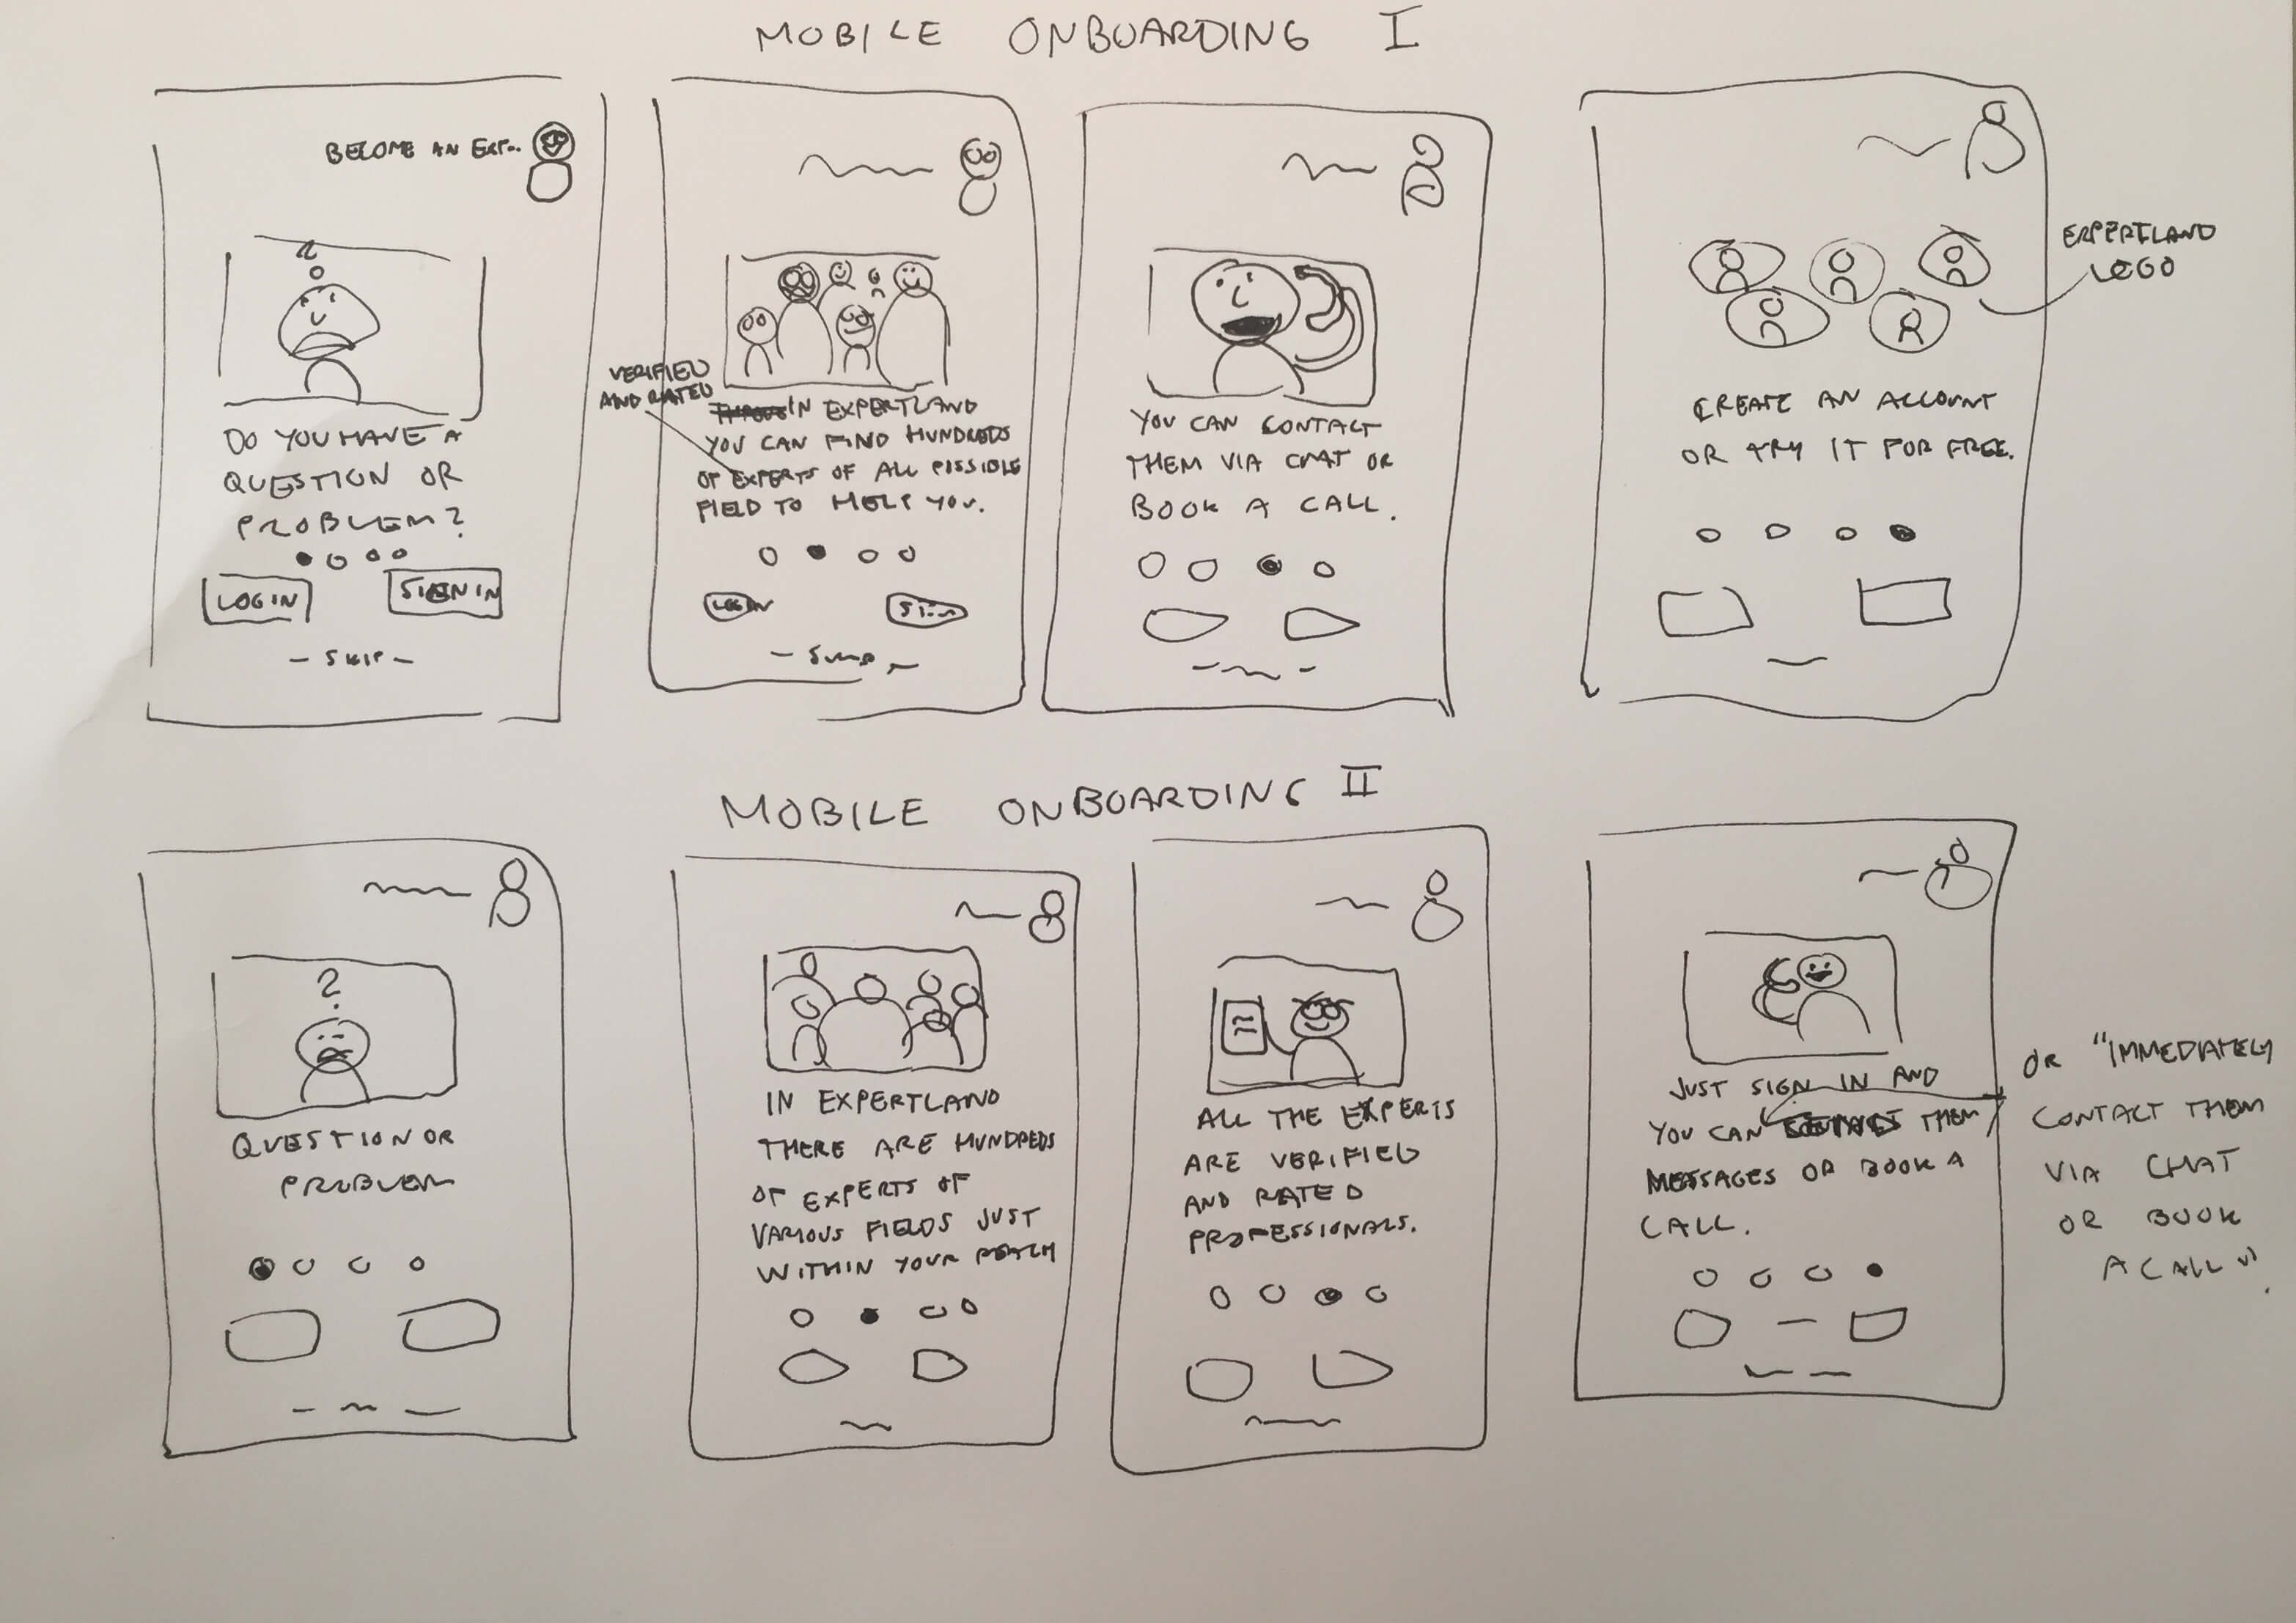 MOBILE ONBOARDING I
BECOME AN EXP..
DO YOU HAVE A
QUESTION OR
PROBLEM?
LOGIN
SIGN IN
- SKIP -
VERIFIED
AND RATED
IN EXPERTLAND
YOU CAN FIND HUNDREDS
OF EXPERTS OF ALL POSSIBLE
FIELD TO HELP YOU.
LOGIN
YOU CAN CONTACT
THEM VIA CHAT OR
BOOK A CALL.
EXPERTLAND
LOGO
CREATE AN ACCOUNT
OR TRY IT FOR FREE.
MOBILE ONBOARDING II
?
QUESTION OR
PROBLEM
IN EXPERTLAND
THERE ARE HUNDREDS
OF EXPERTS OF
VARIOUS FIELDS JUST
WITHIN YOUR REACH
ALL THE EXPERTS
ARE VERIFIED
AND RATED
PROFESSIONALS.
JUST SIGN IN AND
YOU CAN THEM
MESSAGES OR BOOK A
CALL.
OR "IMMEDIATELY
CONTACT THEM
VIA CHAT
OR BOOK
A CALL".